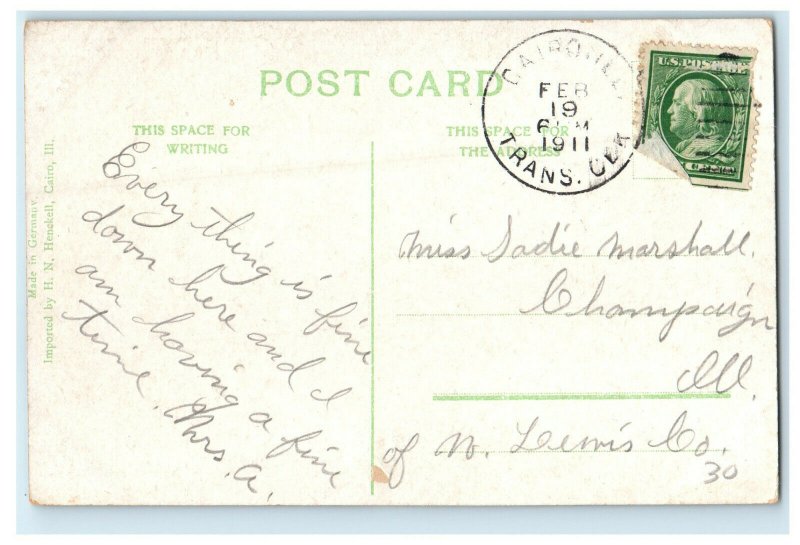 POST CARD
THIS SPACE FOR
WRITING
THIS SPACE FOR
THE ADDRESS
CAIRO, ILL.
FEB
19
M
1911
TRANS. CLK
U.S. POSTAGE
Made in Germany.
Imported by H. N. Henckell, Cairo, Ill.
Every thing is fine
down here and I
am having a fine
time. Mrs. A.
Miss Sadie Marshall.
Champaign
Ill.
of W. Lewis Co.
30